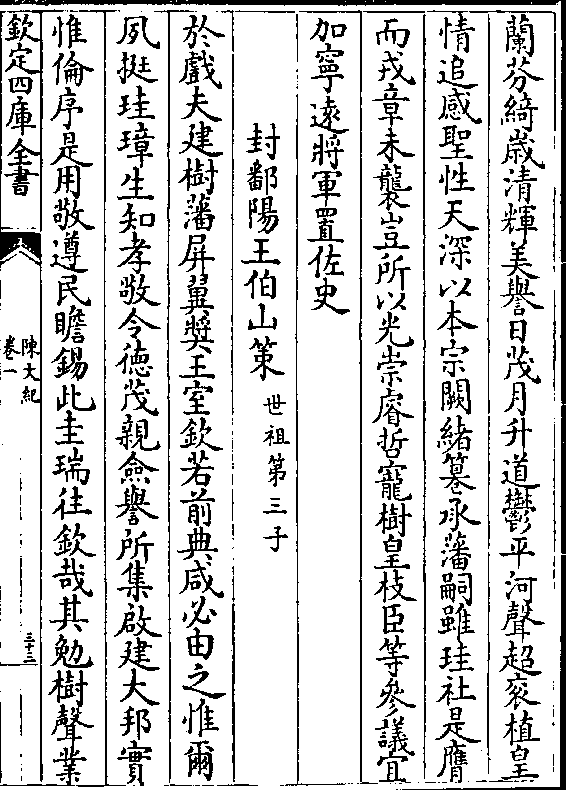 蘭芬綺歳清輝美譽日茂月升道鬱平河聲超衮植皇
情追感聖性天深以本宗闕緒纂承藩嗣雖珪社是膺
而戎章未襲豈所以光崇睿哲寵樹皇枝臣等參議宜
加寧遠將軍置佐史
封鄱陽王伯山策 世祖第三子
於戲夫建樹藩屏翼奬王室欽若前典咸必由之惟爾
夙挺珪璋生知孝敬令德茂親僉譽所集啟建大邦實
惟倫序是用敬遵民瞻錫此圭瑞往欽哉其勉樹聲業
欽定四庫全書
陳文紀
卷一
三十三